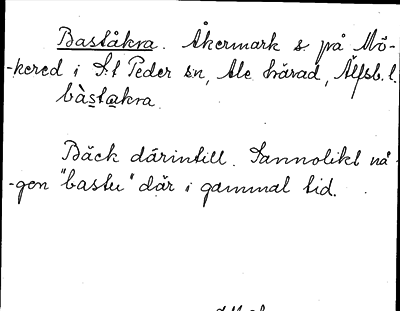 Baståkra. Åkermark s. på Mö-
-kered i S:t Peder sn, Ale härad, Älfsb. l.
bàstakra
Bäck därintill. Sannolikt nå-
-gon "bastu" där i gammal tid.